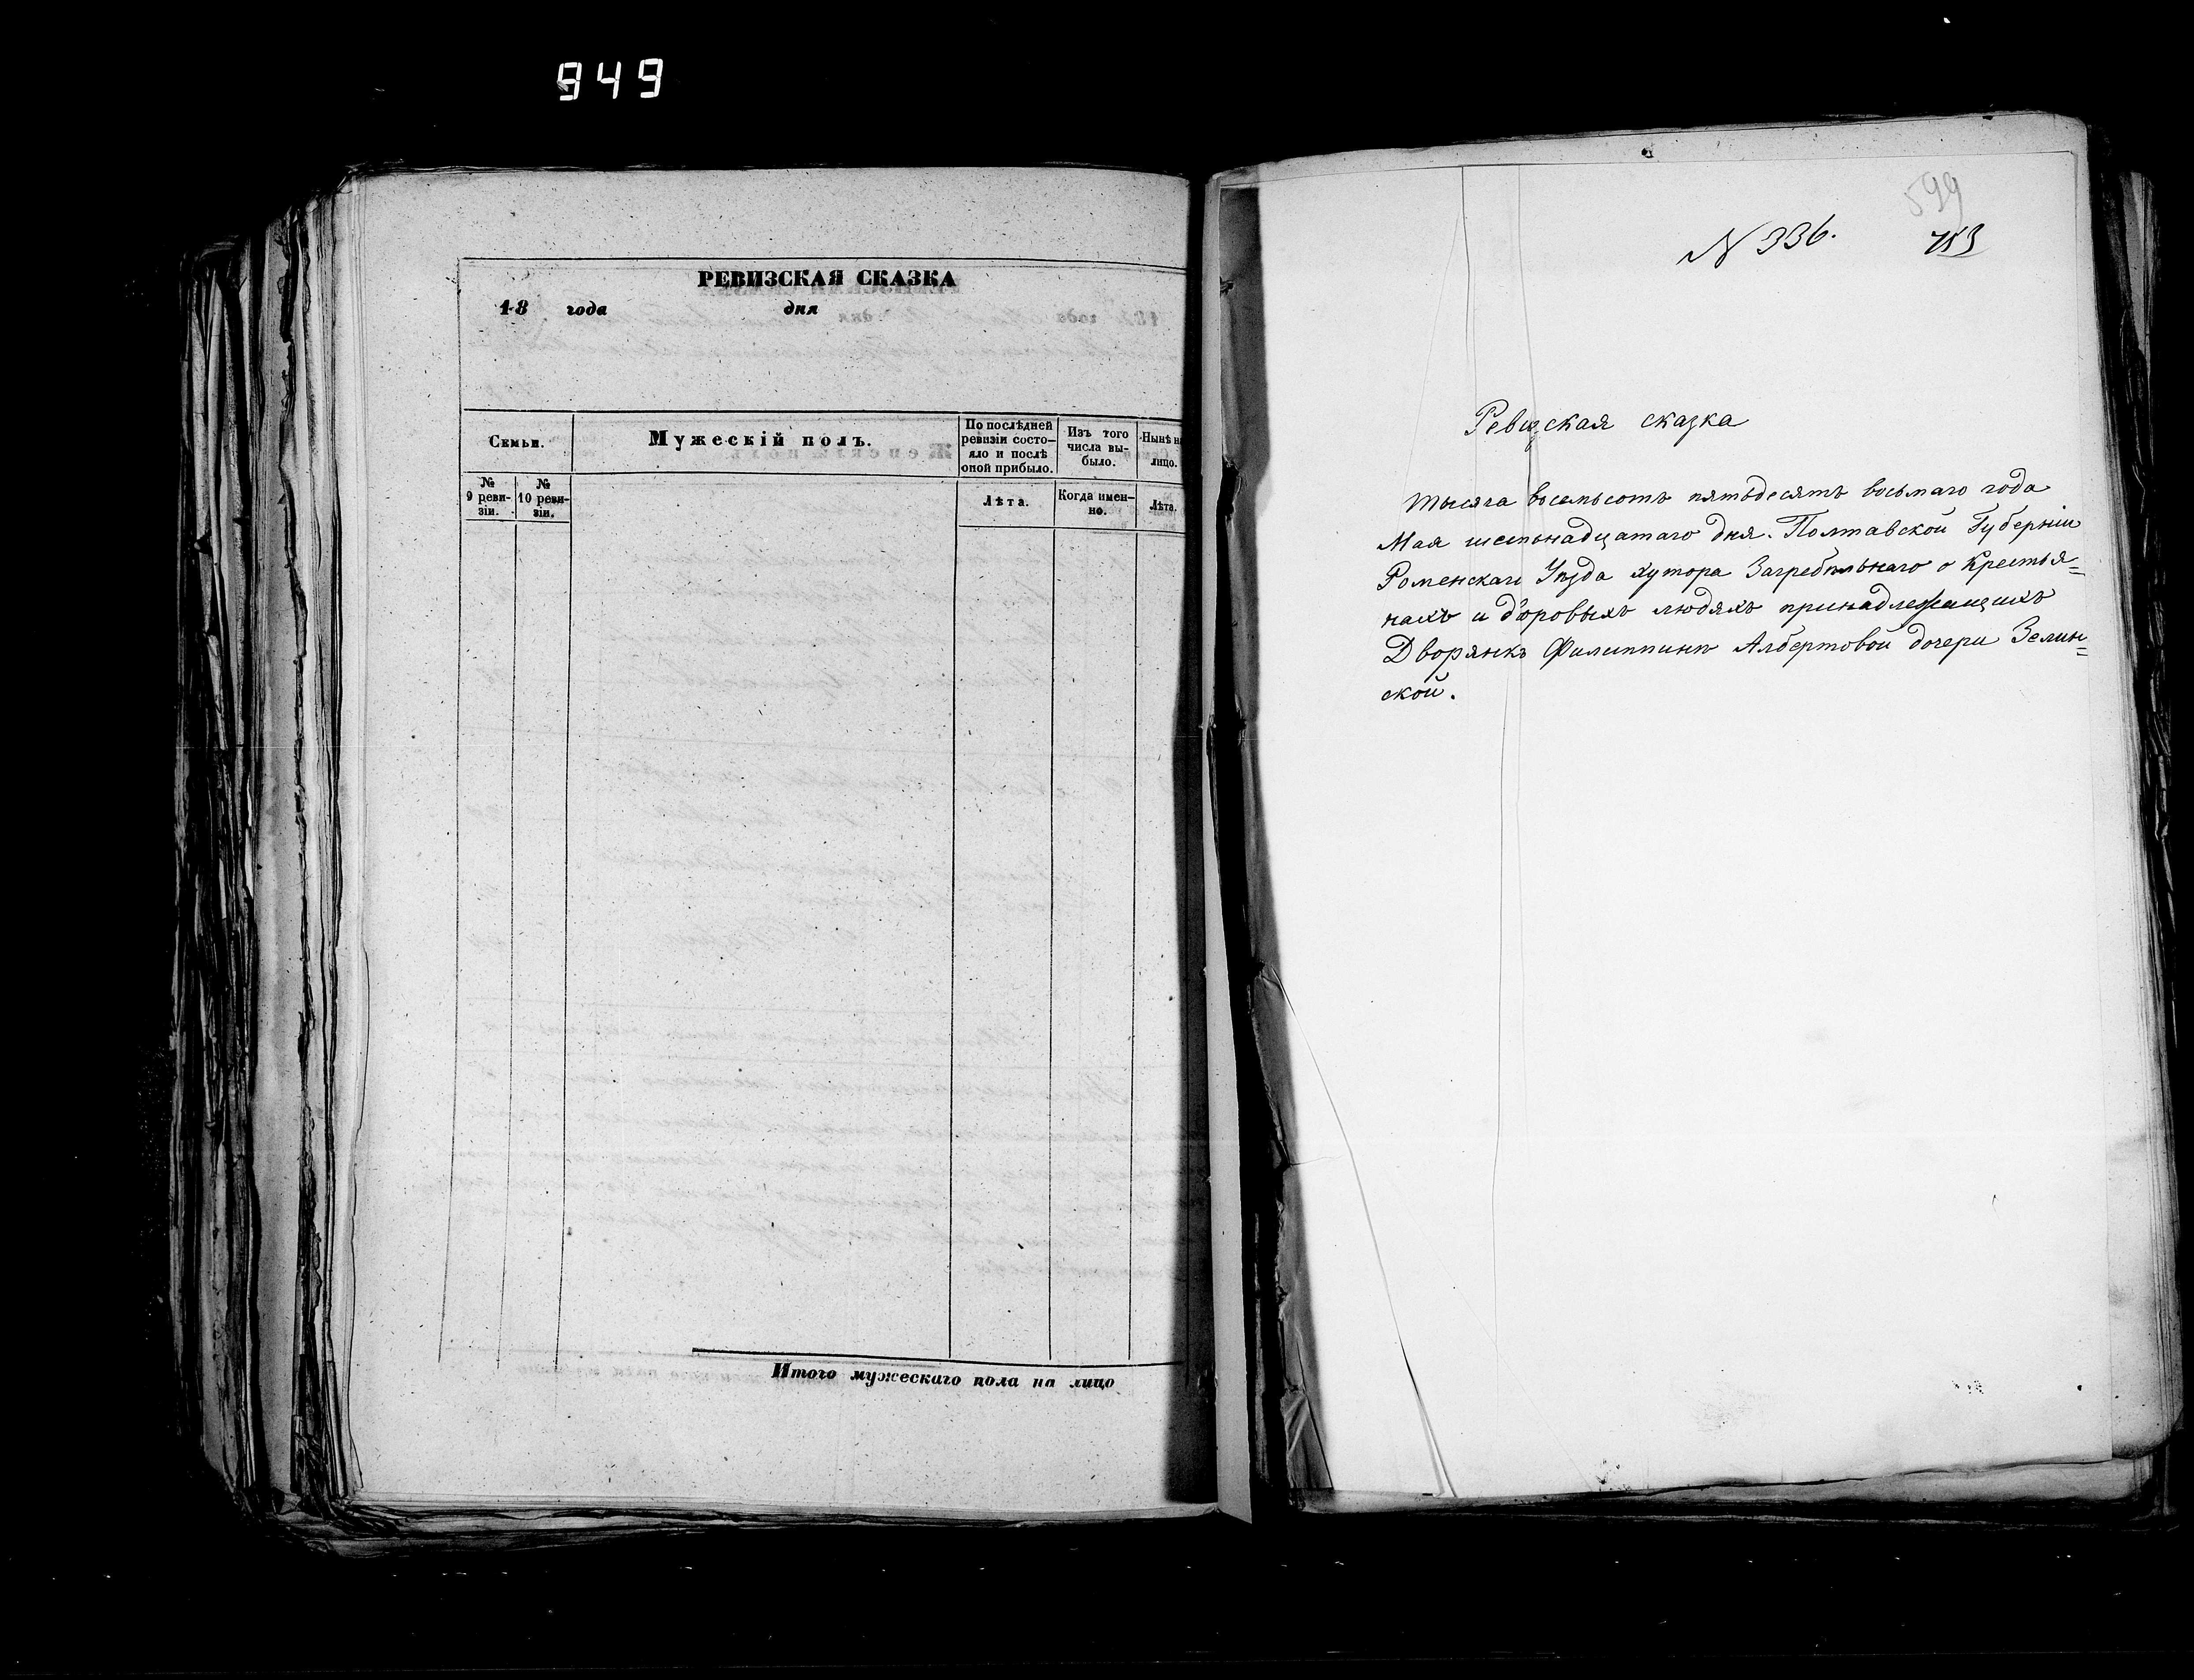 949
РЕВИЗСКАЯ СКАЗКА
18 года дня
Семьи.
Мужескій полъ.
По послѣдней ревизіи состо-
яло и послѣ
оной прибыло.
Изъ того
числа вы-
было.
Нынѣ на
лицо.
№
9 реви-
зіи.
№
10 реви-
зіи.
Лѣта.
Когда имен-
но.
Лѣта.
Итого мужескаго пола на лицо
599
N 336.
753
Ревизская сказка
тысяча восемьсотъ пятьдесятъ восьмаго года
Мая шестьнадцатаго дня. Полтавской Губерніи
Роменскаго Уѣзда хутора Загребельнаго о Крестья=
нахъ и дворовыхъ людяхъ принадлежащихъ
Дворянкѣ Филиппинѣ Албертовой дочери Зелин=
ской.